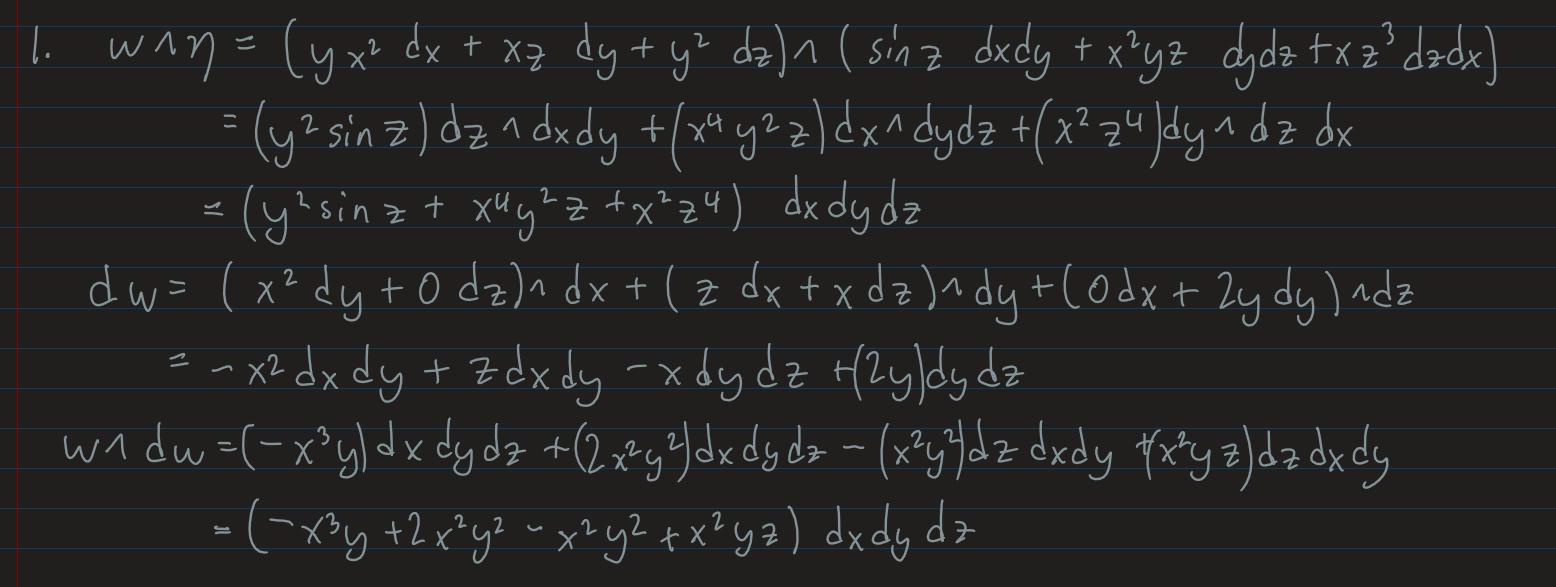 1. w ∧ η = (yx² dx + xz dy + y² dz) ∧ (sin z dxdy + x²yz dydz + xz³ dzdx)
= (y² sin z) dz ∧ dxdy + (x⁴y²z) dx ∧ dydz + (x²z⁴) dy ∧ dz dx
= (y² sin z + x⁴y²z + x²z⁴) dx dy dz
dw = (x² dy + 0 dz) ∧ dx + (z dx + x dz) ∧ dy + (0 dx + 2y dy) ∧ dz
= -x² dx dy + z dx dy - x dy dz + (2y) dy dz
w ∧ dw = (-x³y) dx dy dz + (2x²y²) dx dy dz - (x²y²) dz dx dy + (x²yz) dz dx dy
= (-x³y + 2x²y² - x²y² + x²yz) dx dy dz